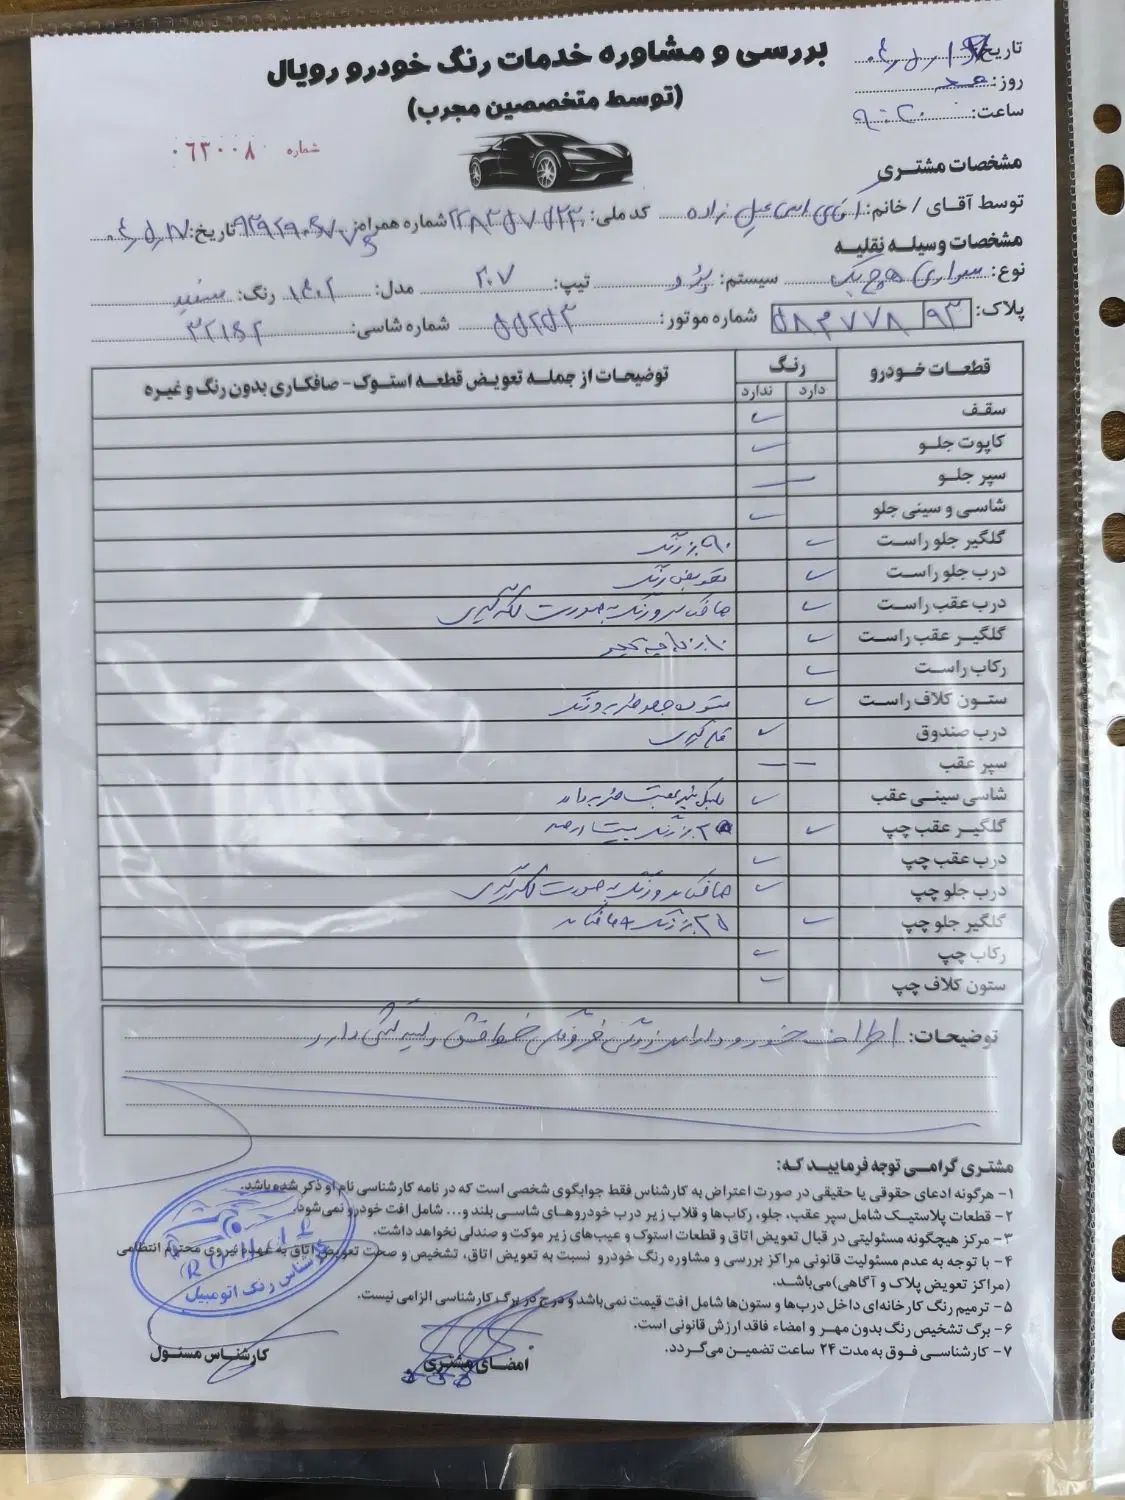 تاریخ:
بررسی و مشاوره خدمات رنگ خودرو رویال
روز:
(توسط متخصصین مجرب)
ساعت: ۹:۲۰
شماره ۰۶۳۰۰۸۰
مشخصات مشتری
توسط آقای / خانم: آقای اسماعیل زاده کد ملی: شماره همراه: تاریخ:
مشخصات وسیله نقلیه
نوع: سواری هاچ بک سیستم: پژو تیپ: ۲۰۷ مدل: ۱۴۰۲ رنگ: سفید
پلاک: ۹۳ شماره موتور: شماره شاسی:
قطعات خودرو رنگ توضیحات از جمله تعویض قطعه استوک - صافکاری بدون رنگ و غیره
دارد ندارد
سقف
کاپوت جلو
سپر جلو
شاسی و سینی جلو
گلگیر جلو راست ۹۰٪ رنگ
درب جلو راست تعویض رنگ
درب عقب راست صافکاری و رنگ به صورت لکه گیری
گلگیر عقب راست
رکاب راست
ستون کلاف راست ستون جلو ضربه و رنگ
درب صندوق قلم گیری
سپر عقب
شاسی سینی عقب
گلگیر عقب چپ
درب عقب چپ
درب جلو چپ صافکاری و رنگ به صورت لکه گیری
گلگیر جلو چپ
رکاب چپ
ستون کلاف چپ
توضیحات: اطراف خودرو دارای
مشتری گرامی توجه فرمایید که:
۱- هرگونه ادعای حقوقی یا حقیقی در صورت اعتراض به کارشناس فقط جوابگوی شخصی است که در نامه کارشناسی نام او ذکر شده باشد.
۲- قطعات پلاستیک شامل سپر عقب، جلو، رکاب‌ها و قلاب زیر درب خودروهای شاسی بلند و... شامل افت خودرو نمی‌شود.
۳- مرکز هیچگونه مسئولیتی در قبال تعویض اتاق و قطعات استوک و عیب‌های زیر موکت و صندلی نخواهد داشت.
۴- با توجه به عدم مسئولیت قانونی مراکز بررسی و مشاوره رنگ خودرو نسبت به تعویض اتاق، تشخیص و صحت تعویض اتاق به عهده نیروی محترم انتظامی
(مراکز تعویض پلاک و آگاهی) می‌باشد.
۵- ترمیم رنگ کارخانه‌ای داخل درب‌ها و ستون‌ها شامل افت قیمت نمی‌باشد و درج در برگ کارشناسی الزامی نیست.
۶- برگ تشخیص رنگ بدون مهر و امضاء فاقد ارزش قانونی است.
۷- کارشناسی فوق به مدت ۲۴ ساعت تضمین می‌گردد.
کارشناس رنگ اتومبیل
امضای مشتری
کارشناس مسئول